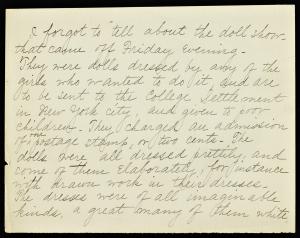 I forgot to tell about the doll show
that came off Friday evening.
They were dolls dressed by any of the
girls who wanted to do it, and are
to be sent to the College Settlement
in New York city, and given to poor
children. They charged an admission
of a postage stamp, or two cents. The
dolls were all dressed prettily, and
some of them elaborately, for instance
with drawn work in their dresses.
The dresses were of all imaginable
kinds, a great many of them white